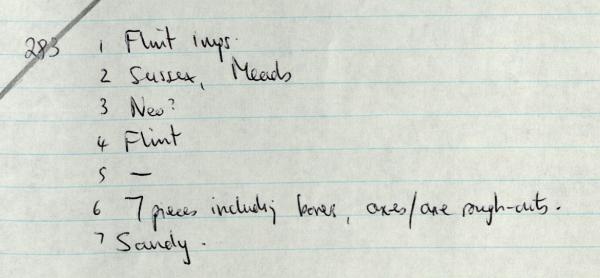 283 1 Flint imps.
2 Sussex, Meads
3 Neo?
4 Flint
5 —
6 7 pieces including borer, axes/axe rough-outs.
7 Sandy.